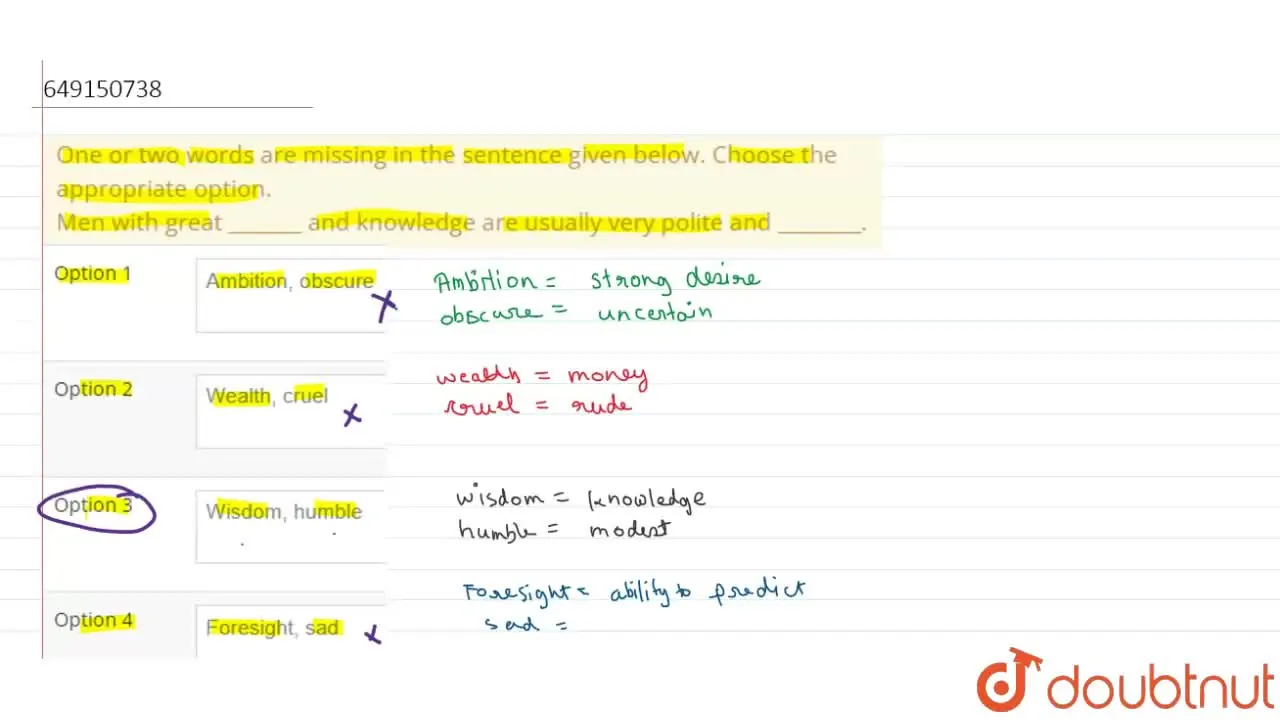 649150738
One or two words are missing in the sentence given below. Choose the
appropriate option.
Men with great ______ and knowledge are usually very polite and _______.
Option 1
Ambition, obscure
x
Ambition = strong desire
obscure = uncertain
Option 2
Wealth, cruel
x
wealth = money
cruel = rude
Option 3
Wisdom, humble
wisdom = knowledge
humble = modest
Option 4
Foresight, sad
x
Foresight = ability to predict
sad =
doubtnut